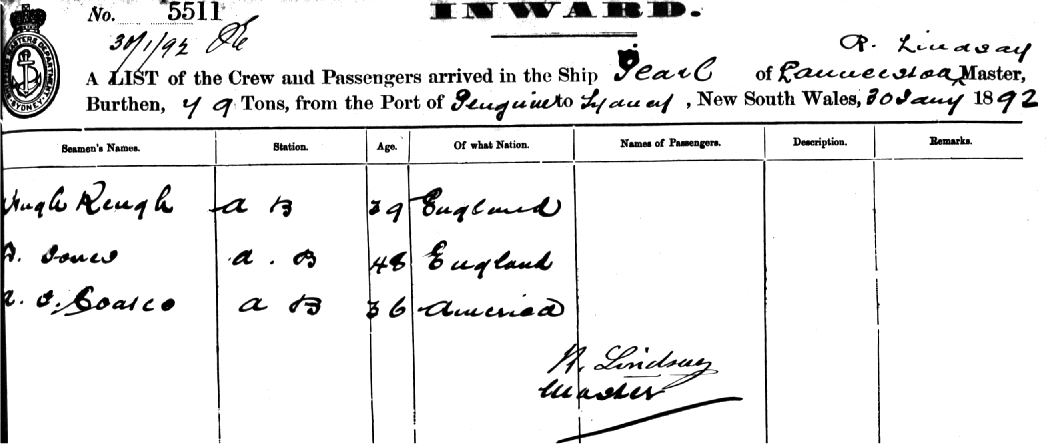 No. 5511 INWARD.
30/1/92
R. Lindsay
A LIST of the Crew and Passengers arrived in the Ship Pearl of Launceston Master,
Burthen, 79 Tons, from the Port of Penguin to Sydney, New South Wales, 30 Jany 1892
Seamen's Names. Station. Age. Of what Nation. Names of Passengers. Description. Remarks.
Hugh Keugh A B 39 England
Jones A. B 48 England
A B 36 America
R. Lindsay
Master